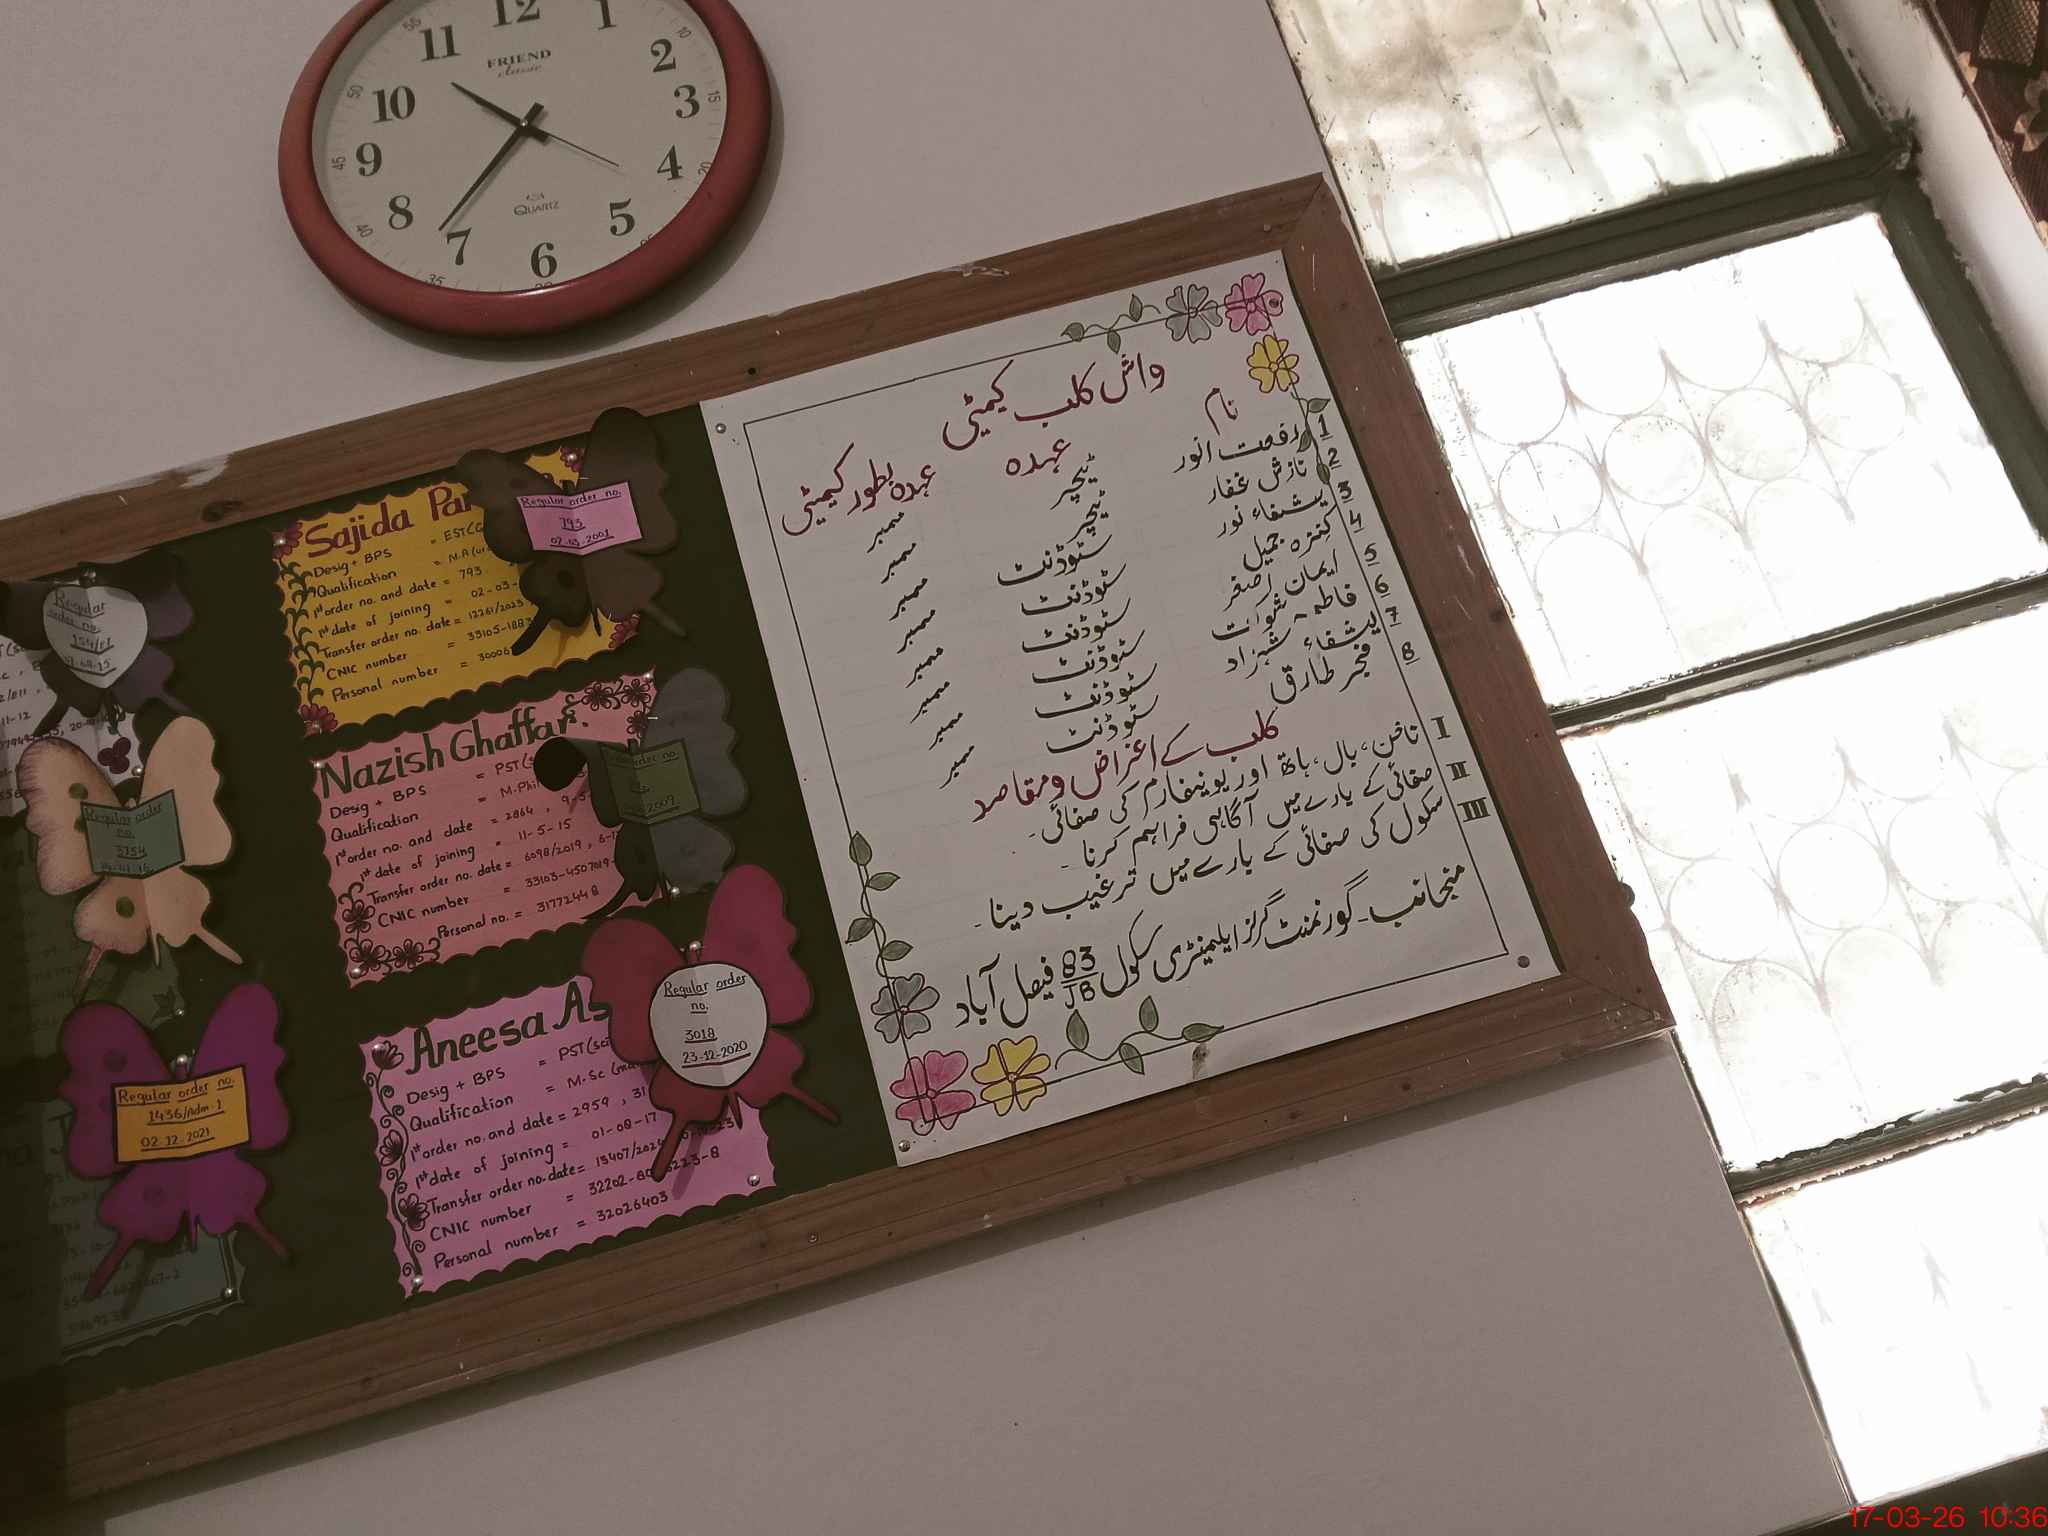 12
1
11
2
10
3
9
4
8
5
7
6
50
10
15
45
40
35
FRIEND
classic
QUARTZ
واش کلب کمیٹی
نام عہدہ عہدہ بطور کمیٹی
1 رفعت انور ٹیچر ممبر
2 نازش غفار ٹیچر ممبر
3 یشفاء نور سٹوڈنٹ ممبر
4 کنزہ جمیل سٹوڈنٹ ممبر
5 ایمان اصغر سٹوڈنٹ ممبر
6 فاطمہ سٹوڈنٹ ممبر
7 یشفاء شہزاد سٹوڈنٹ ممبر
8 فجر طارق سٹوڈنٹ ممبر
کلب کے اغراض و مقاصد
I ناخن، بال، ہاتھ اور یونیفارم کی صفائی۔
II صفائی کے بارے میں آگاہی فراہم کرنا۔
III سکول کی صفائی کے بارے میں ترغیب دینا۔
منجانب۔ گورنمنٹ گرلز ایلیمنٹری سکول 83/JB فیصل آباد
Sajida
Desig + BPS = EST
Qualification = M.A
1st order no. and date = 793
1st date of joining = 02-03-
Transfer order no. date = 12261/2023
CNIC number = 33105-1883
Personal number = 30006
Regular order no.
793
02-03-2001
Nazish Ghaffar.
Desig + BPS = PST
Qualification = M.Phil
1st order no. and date = 2864, 9-5-
1st date of joining = 11-5-15
Transfer order no. date = 6098/2019, 6-
CNIC number = 33103-4507019-
Personal no. = 31772448
order no.
2009
Aneesa
Desig + BPS = PST
Qualification = M.Sc
1st order no. and date = 2959, 31
1st date of joining = 01-08-17
Transfer order no. date = 13407/202
CNIC number = 32202-80 223-8
Personal number = 32026403
Regular order
no.
3018
23-12-2020
Regular
order no.
Regular order
no.
3754
Regular order no.
1436/Adm-1
02-12-2021
17-03-26 10:36